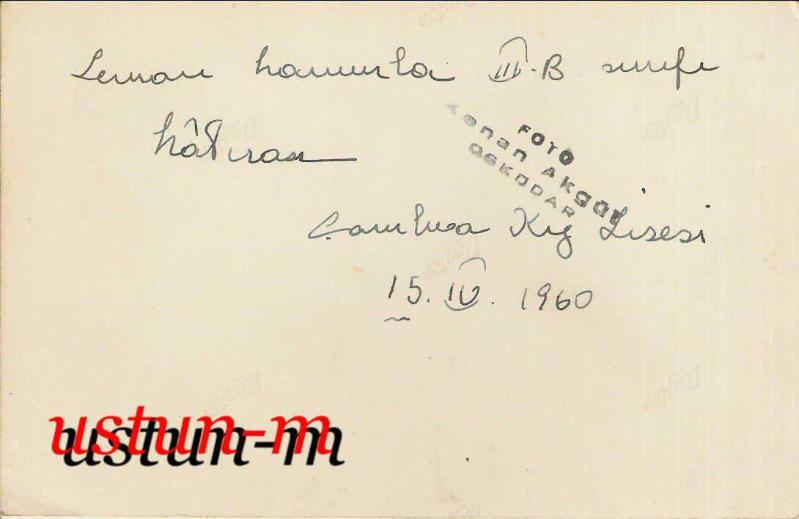 Leman hanımla III-B sınıfı
hâtırası
FOTO
Kenan Akgül
ÜSKÜDAR
Çamlıca Kız Lisesi
15. IV. 1960
ustun-m